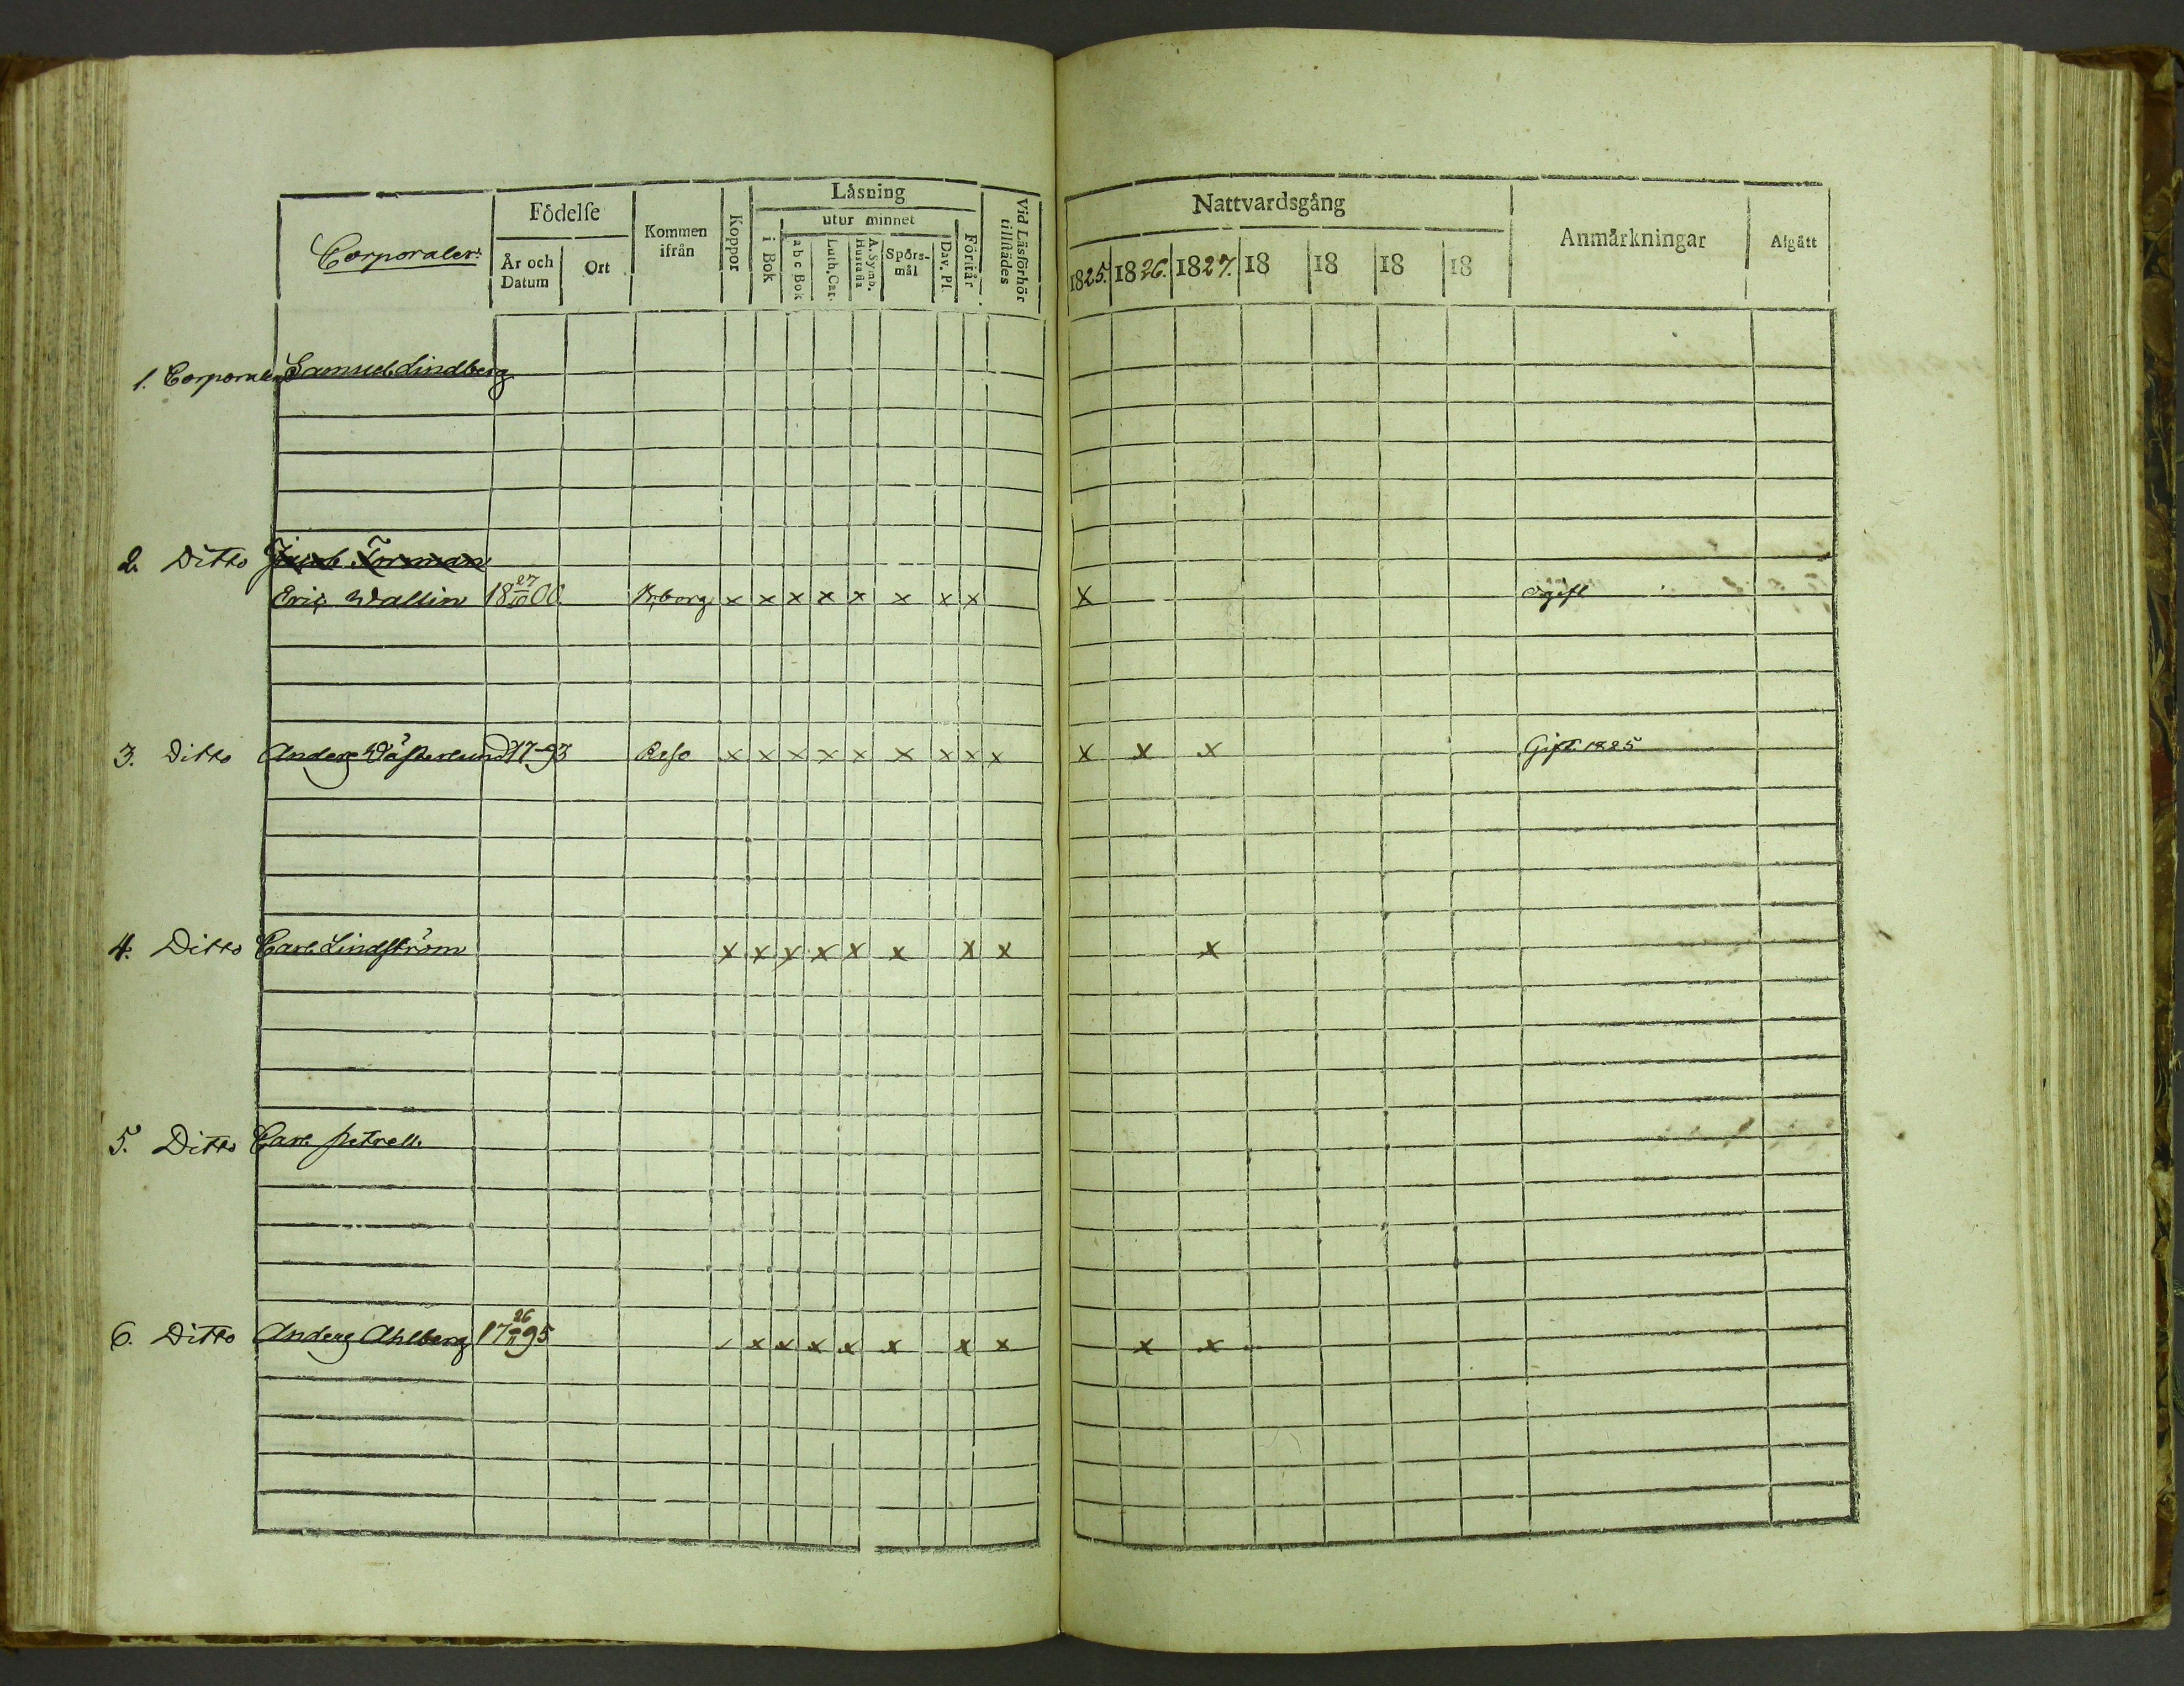 Corporaler.
Födelse
År och Datum
Ort
Kommen ifrån
Koppor
Läsning
i Bok
utur minnet
a b c Bok
Luth. Cat.
A. Symb. Hustafla
Spörsmål
Dav. Ps.
Förstår
Vid Läsförhör tillstädes
Nattvardsgång
1825. 1826. 1827. 18 18 18 18
Anmärkningar
Afgått
1. Corporalen Samuel Lindberg
2. Ditto Jacob Forsman
Eric Wallin 18 27/10 00. x x x x x x x x x ogift
3. Ditto Anders Wästerlund 17-93 Reso x x x x x x x x x x x x Gift 1825
4. Ditto Carl Lindström x x x x x x x x x
5. Ditto Carl Petrell
6. Ditto Anders Ahlberg 17 26/11 95 x x x x x x x x x x